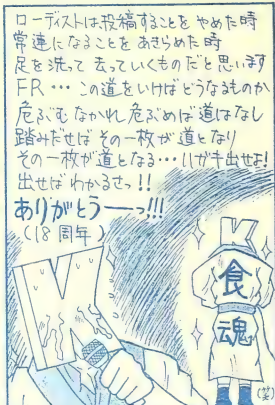 ローディストは投稿することをやめた時
常連になることをあきらめた時
足を洗って去っていくものだと思います
FR… この道をいけばどうなるものか
危ぶむなかれ 危ぶめば道はなし
踏みだせばその一枚が道となり
その一枚が道となる… ハガキ出せよ!
出せばわかるさっ!!
ありがとうーっ!!!
(18周年)
食
魂
(笑)